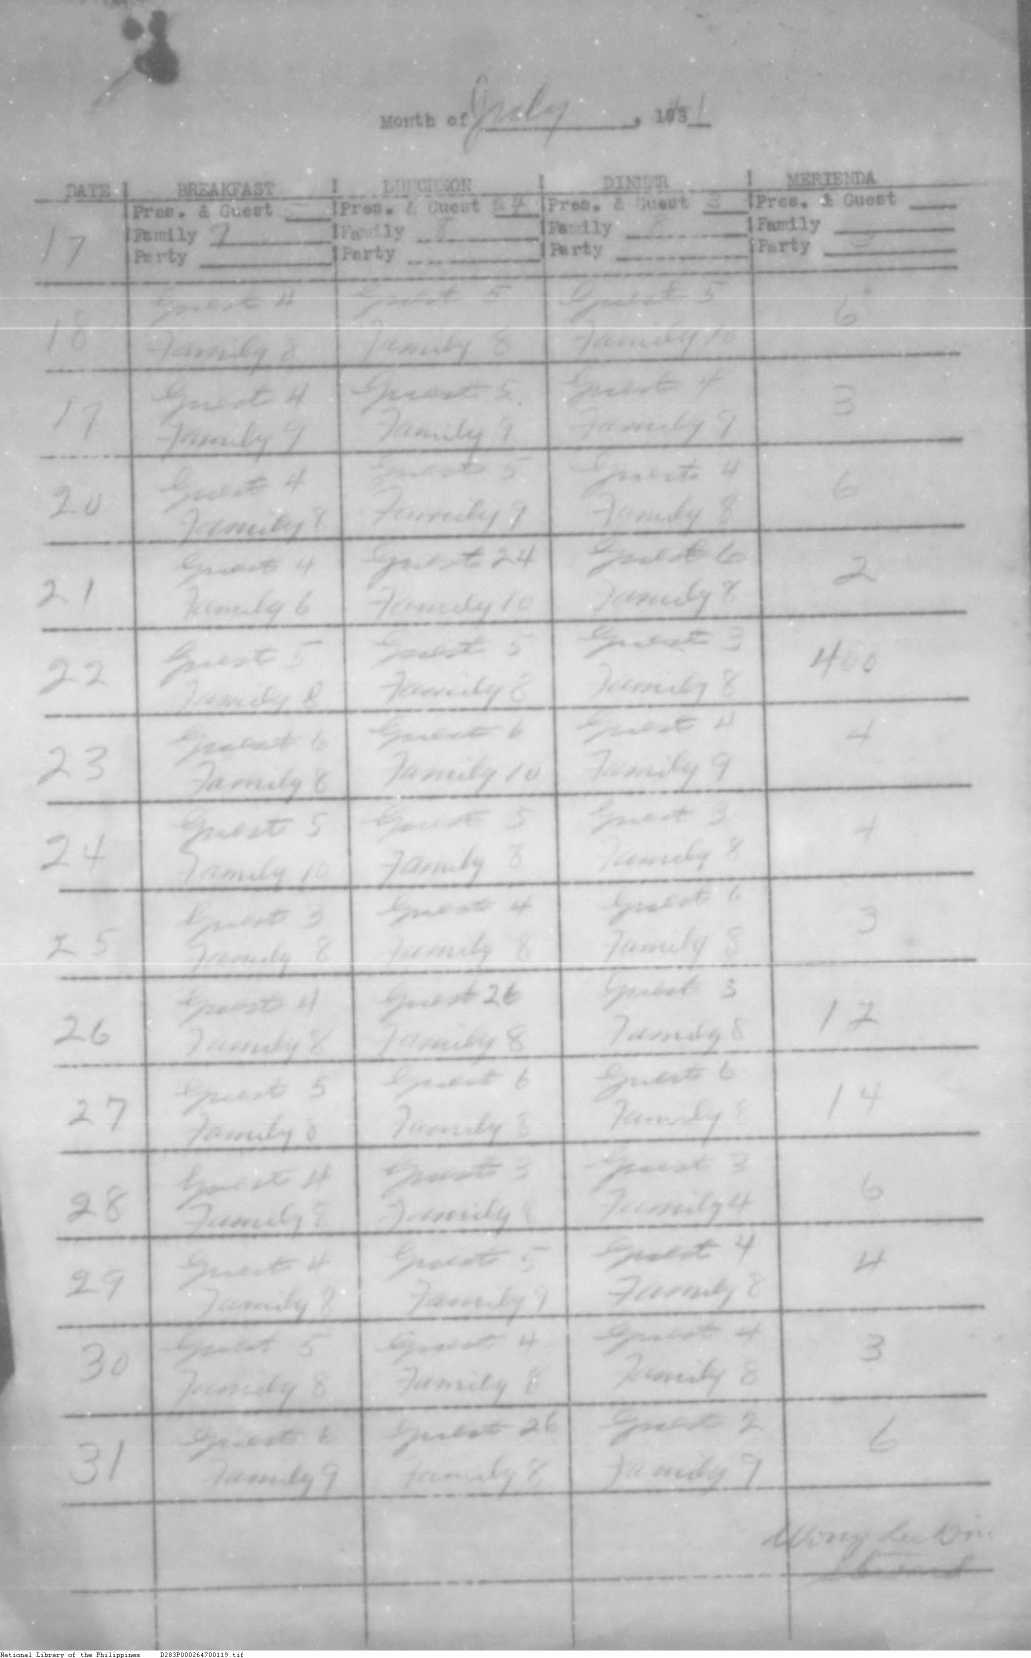 Month of July, 1941
DATE | BREAKFAST | LUNCHEON | DINNER | MERIENDA
17 | Pres. & Guest 5 | Pres. & Guest 24 | Pres. & Guest 3 | Pres. & Guest
Family 9 | Family 8 | Family 8 | Family
Party | Party | Party | Party 5
18 | Guest 4 | Guest 5 | Guest 5 | 6
Family 8 | Family 8 | Family 10
19 | Guest 4 | Guest 5 | Guest 4 | 3
Family 9 | Family 9 | Family 9
20 | Guest 4 | Guest 5 | Guest 4 | 6
Family 8 | Family 9 | Family 8
21 | Guest 4 | Guest 24 | Guest 6 | 2
Family 6 | Family 10 | Family 8
22 | Guest 5 | Guest 5 | Guest 3 | 400
Family 8 | Family 8 | Family 8
23 | Guest 6 | Guest 6 | Guest 4 | 4
Family 8 | Family 10 | Family 9
24 | Guest 5 | Guest 5 | Guest 3 | 4
Family 10 | Family 8 | Family 8
25 | Guest 3 | Guest 4 | Guest 6 | 3
Family 8 | Family 8 | Family 8
26 | Guest 4 | Guest 26 | Guest 3 | 12
Family 8 | Family 8 | Family 8
27 | Guest 5 | Guest 6 | Guest 6 | 14
Family 8 | Family 8 | Family 8
28 | Guest 4 | Guest 3 | Guest 3 | 6
Family 8 | Family 8 | Family 4
29 | Guest 4 | Guest 5 | Guest 4 | 4
Family 8 | Family 9 | Family 8
30 | Guest 5 | Guest 4 | Guest 4 | 3
Family 8 | Family 8 | Family 8
31 | Guest 6 | Guest 26 | Guest 2 | 6
Family 9 | Family 8 | Family 9
Wong
Steward
National Library of the Philippines D283P000264700119.tif